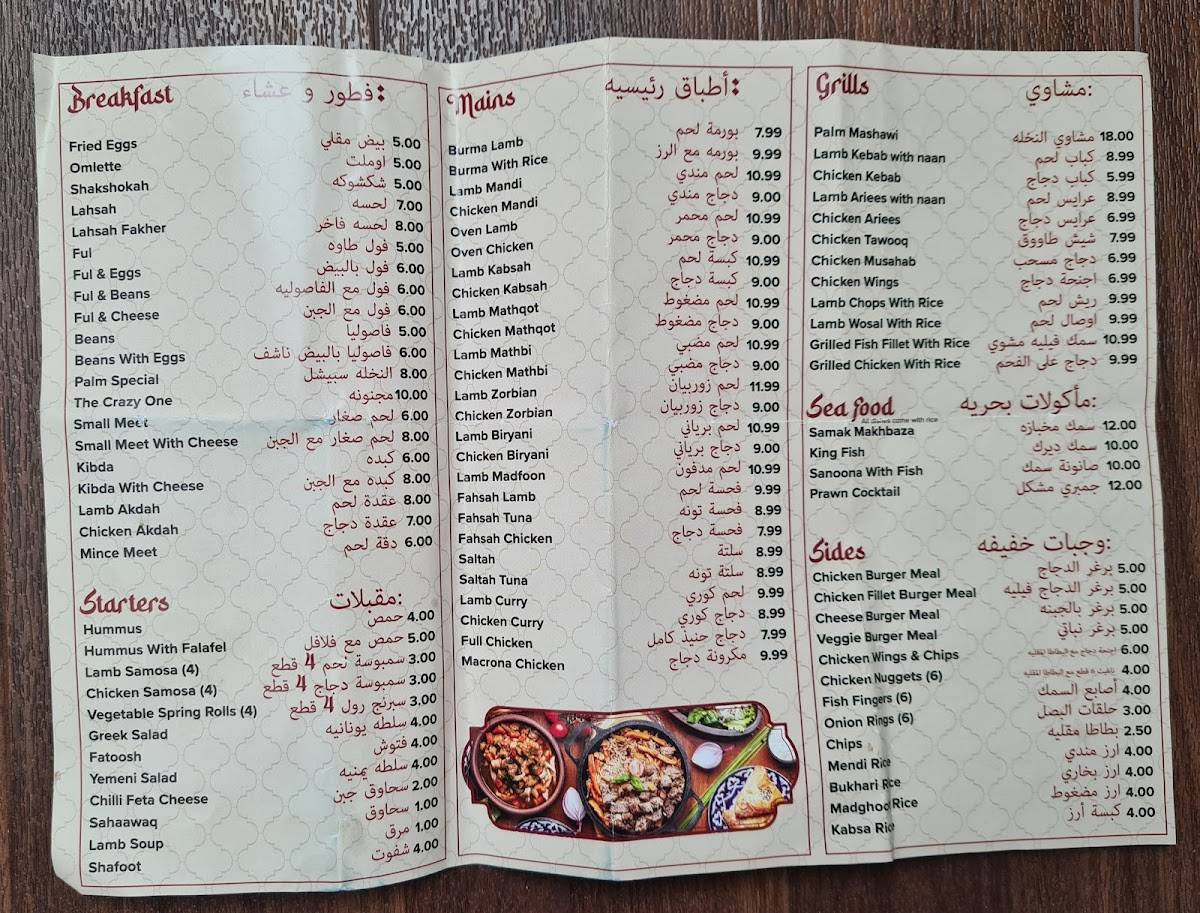 Breakfast فطور و عشاء:
Fried Eggs بيض مقلي 5.00
Omlette اوملت 5.00
Shakshokah شكشوكه 5.00
Lahsah لحسه 7.00
Lahsah Fakher لحسه فاخر 8.00
Ful فول طاوه 5.00
Ful & Eggs فول بالبيض 6.00
Ful & Beans فول مع الفاصوليه 6.00
Ful & Cheese فول مع الجبن 6.00
Beans فاصوليا 5.00
Beans With Eggs فاصوليا بالبيض ناشف 6.00
Palm Special النخله سبيشل 8.00
The Crazy One مجنونه 10.00
Small Meet لحم صغار 6.00
Small Meet With Cheese لحم صغار مع الجبن 8.00
Kibda كبده 6.00
Kibda With Cheese كبده مع الجبن 8.00
Lamb Akdah عقدة لحم 8.00
Chicken Akdah عقدة دجاج 7.00
Mince Meet دقة لحم 6.00
Starters مقبلات:
Hummus حمص 4.00
Hummus With Falafel حمص مع فلافل 5.00
Lamb Samosa (4) سمبوسة نحم 4 قطع 3.00
Chicken Samosa (4) سمبوسة دجاج 4 قطع 3.00
Vegetable Spring Rolls (4) سبرنج رول 4 قطع 3.00
Greek Salad سلطه يونانيه 4.00
Fatoosh فتوش 4.00
Yemeni Salad سلطه يمنيه 4.00
Chilli Feta Cheese سحاوق جبن 2.00
Sahaawaq سحاوق 1.00
Lamb Soup مرق 1.00
Shafoot شفوت 4.00
Mains أطباق رئيسيه:
Burma Lamb بورمة لحم 7.99
Burma With Rice بورمه مع الرز 9.99
Lamb Mandi لحم مندي 10.99
Chicken Mandi دجاج مندي 9.00
Oven Lamb لحم محمر 10.99
Oven Chicken دجاج محمر 9.00
Lamb Kabsah كبسة لحم 10.99
Chicken Kabsah كبسة دجاج 9.00
Lamb Mathqot لحم مضغوط 10.99
Chicken Mathqot دجاج مضغوط 9.00
Lamb Mathbi لحم مضبي 10.99
Chicken Mathbi دجاج مضبي 9.00
Lamb Zorbian لحم زوربيان 11.99
Chicken Zorbian دجاج زوربيان 9.00
Lamb Biryani لحم برياني 10.99
Chicken Biryani دجاج برياني 9.00
Lamb Madfoon لحم مدفون 10.99
Fahsah Lamb فحسة لحم 9.99
Fahsah Tuna فحسة تونه 8.99
Fahsah Chicken فحسة دجاج 7.99
Saltah سلتة 8.99
Saltah Tuna سلتة تونه 8.99
Lamb Curry لحم كوري 9.99
Chicken Curry دجاج كوري 8.99
Full Chicken دجاج حنيذ كامل 7.99
Macrona Chicken مكرونة دجاج 9.99
Grills مشاوي:
Palm Mashawi مشاوي النخله 18.00
Lamb Kebab with naan كباب لحم 8.99
Chicken Kebab كباب دجاج 5.99
Lamb Ariees with naan عرايس لحم 8.99
Chicken Ariees عرايس دجاج 6.99
Chicken Tawooq شيش طاووق 7.99
Chicken Musahab دجاج مسحب 6.99
Chicken Wings اجنحة دجاج 6.99
Lamb Chops With Rice ريش لحم 9.99
Lamb Wosal With Rice اوصال لحم 9.99
Grilled Fish Fillet With Rice سمك فيليه مشوي 10.99
Grilled Chicken With Rice دجاج على الفحم 9.99
Sea food مأكولات بحريه:
come with rice
Samak Makhbaza سمك مخبازه 12.00
King Fish سمك ديرك 10.00
Sanoona With Fish صانونة سمك 10.00
Prawn Cocktail جمبري مشكل 12.00
Sides وجبات خفيفه:
Chicken Burger Meal برغر الدجاج 5.00
Chicken Fillet Burger Meal برغر الدجاج فيليه 5.00
Cheese Burger Meal برغر بالجبنه 5.00
Veggie Burger Meal برغر نباتي 5.00
Chicken Wings & Chips اجنحة دجاج مع البطاطا المقليه 6.00
Chicken Nuggets (6) قطع مع البطاطا المقليه 4.00
Fish Fingers (6) أصابع السمك 4.00
Onion Rings (6) حلقات البصل 3.00
Chips بطاطا مقليه 2.50
Mendi Rice ارز مندي 4.00
Bukhari Rice ارز بخاري 4.00
Madghoo Rice ارز مضغوط 4.00
Kabsa Rice كبسة أرز 4.00